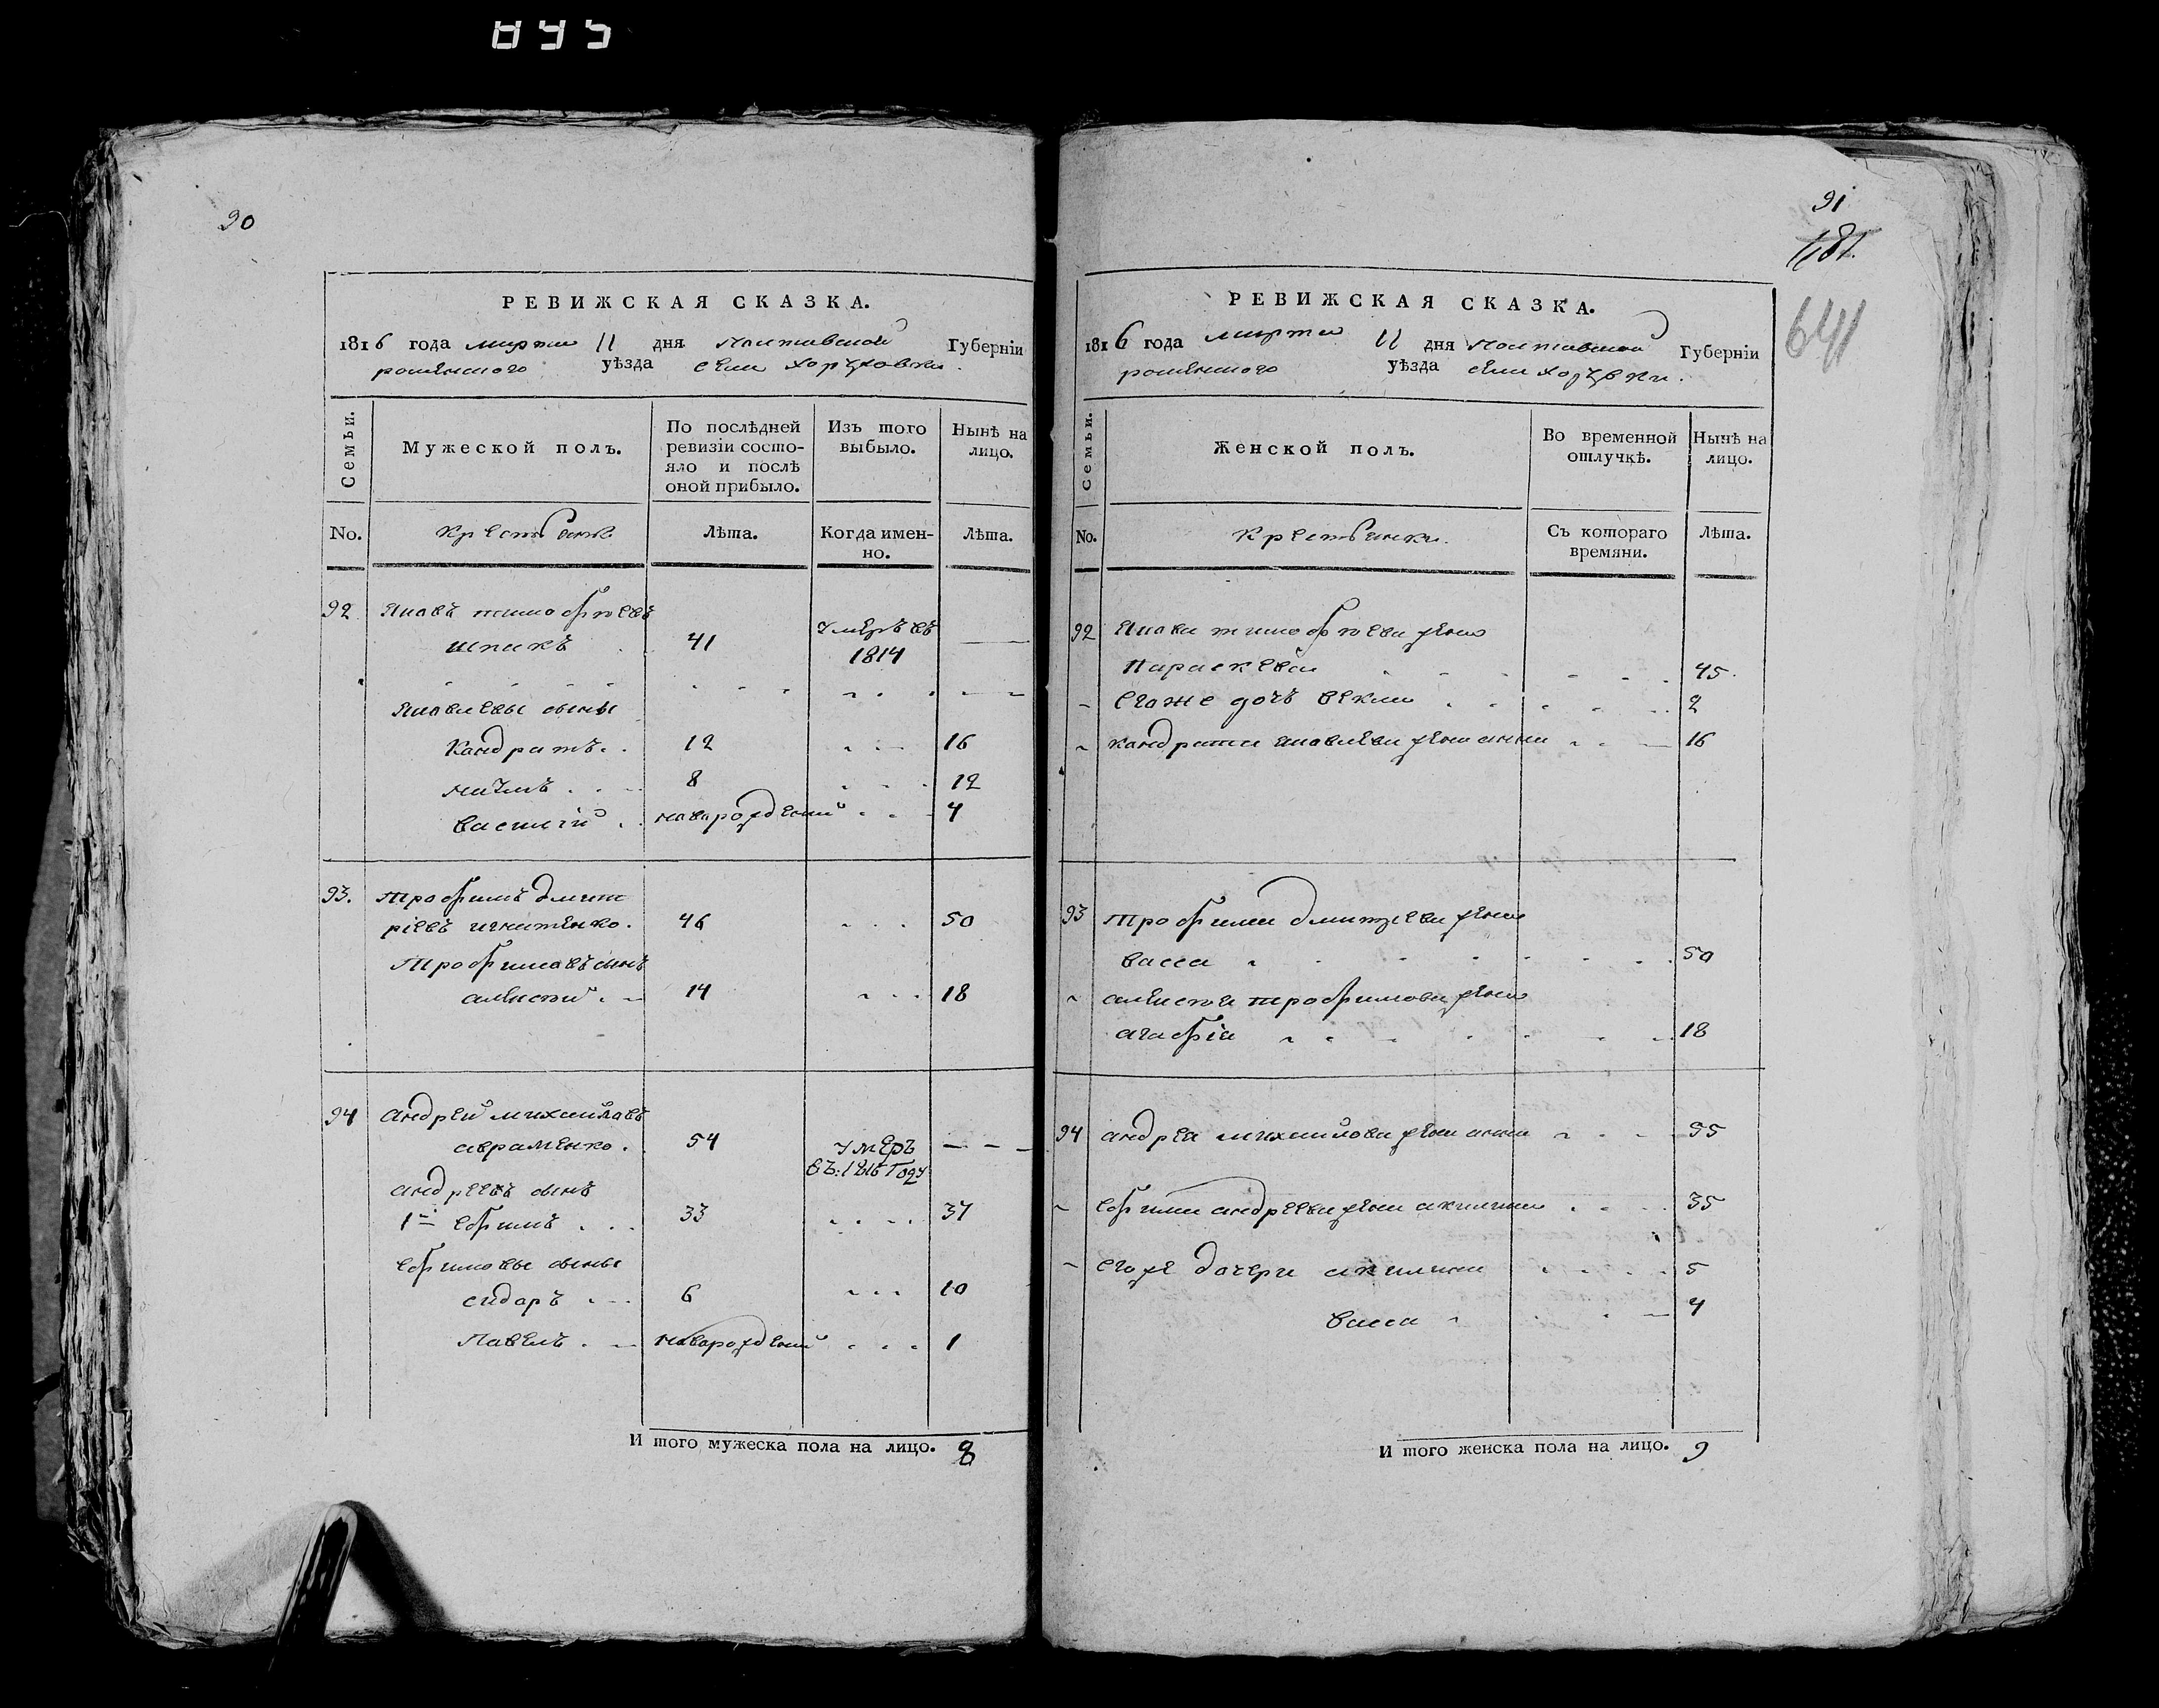 895
90
РЕВИЖСКАЯ СКАЗКА.
1816 года марта 11 дня Полтавской Губерніи
роменского уѣзда села
Семьи.
Мужеской полъ.
По послѣдней ревизіи состояло и послѣ оной прибыло.
Изъ того выбыло.
Нынѣ на лицо.
No.
Крестьяне
Лѣта.
Когда именно.
Лѣта.
92 Яковъ тимофѣевъ
шпакъ 41 умеръ въ 1814
Яковлевы сыны
Кандратъ 12 16
8 12
василій новорожденый 4
93. трофимъ дмит
ріевъ игнатенко. 46 50
Трофимовъ сынъ
алексѣй 14 18
94 андрей михайловъ
авраменко. 54 умеръ въ: 1815 году
андреевъ сынъ
1й ефимъ 33 37
ефимовы сыны
сидоръ 6 10
Павелъ новорожденый 1
И того мужеска пола на лицо. 8
91
181.
641
РЕВИЖСКАЯ СКАЗКА.
1816 года марта 11 дня Полтавской Губерніи
роменского уѣзда села
Семьи.
Женской полъ.
Во временной отлучкѣ.
Нынѣ на лицо.
No.
Крестьянки.
Съ котораго времяни.
Лѣта.
92 Якова тимофѣева жена
Параскевія 45
егоже дочь 2
кандрата яковлева жена анна 16
93 трофима дмитрева жена
васса 50
алексѣя трофимова жена
агафія 18
94 андрея михайлова жена анна 55
ефима андреева жена акилина 35
егоже дочери акилина 5
васса 4
И того женска пола на лицо. 9